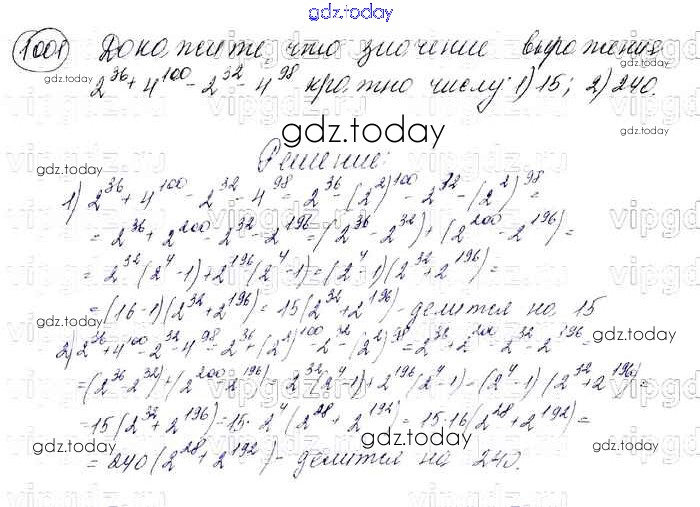 gdz.today
1001 Докажите, что значение выражения
2^36 + 4^100 - 2^32 - 4^98 кратно числу: 1) 15; 2) 240.
gdz.today
Решение:
1) 2^36 + 4^100 - 2^32 - 4^98 = 2^36 - (2^2)^100 - 2^32 - (2^2)^98 =
= 2^36 + 2^200 - 2^32 - 2^196 = (2^36 - 2^32) + (2^200 - 2^196) =
= 2^32 (2^4 - 1) + 2^196 (2^4 - 1) = (2^4 - 1)(2^32 + 2^196) =
= (16 - 1)(2^32 + 2^196) = 15(2^32 + 2^196) - делится на 15
2) 2^36 + 4^100 - 2^32 - 4^98 = 2^36 + (2^2)^100 - 2^32 - (2^2)^98 = 2^36 + 2^200 - 2^32 - 2^196 =
= (2^36 - 2^32) + (2^200 - 2^196) = 2^32 (2^4 - 1) + 2^196 (2^4 - 1) = (2^4 - 1)(2^32 + 2^196) =
= 15(2^32 + 2^196) = 15 · 2^4 (2^28 + 2^192) = 15 · 16 (2^28 + 2^192) =
gdz.today
= 240 (2^28 + 2^192) - делится на 240.